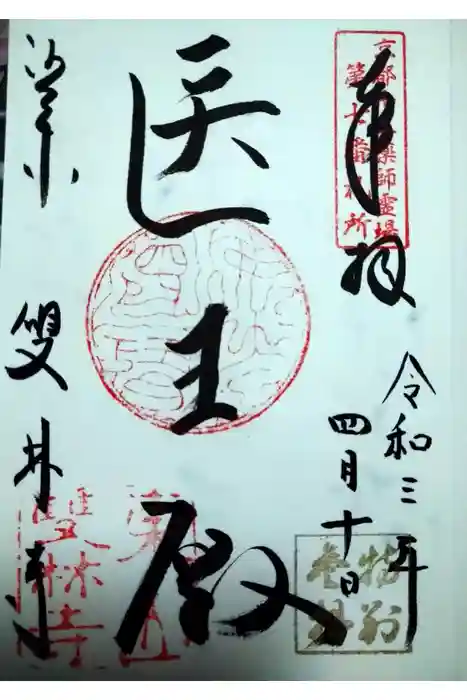 京都十二薬師霊場
第七番札所
奉拝
令和三年
四月十日
特別
参拝
医王殿
双林寺
雙林寺